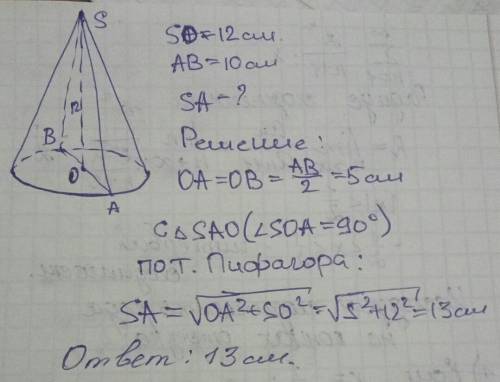 S
12
B
O
A
SO=12см.
AB=10см
SA-?
Решение:
OA=OB=AB/2=5см
С△SAO(∠SOA=90°)
по т. Пифагора:
SA=√OA²+SO²=√5²+12²=13см
Ответ: 13см.